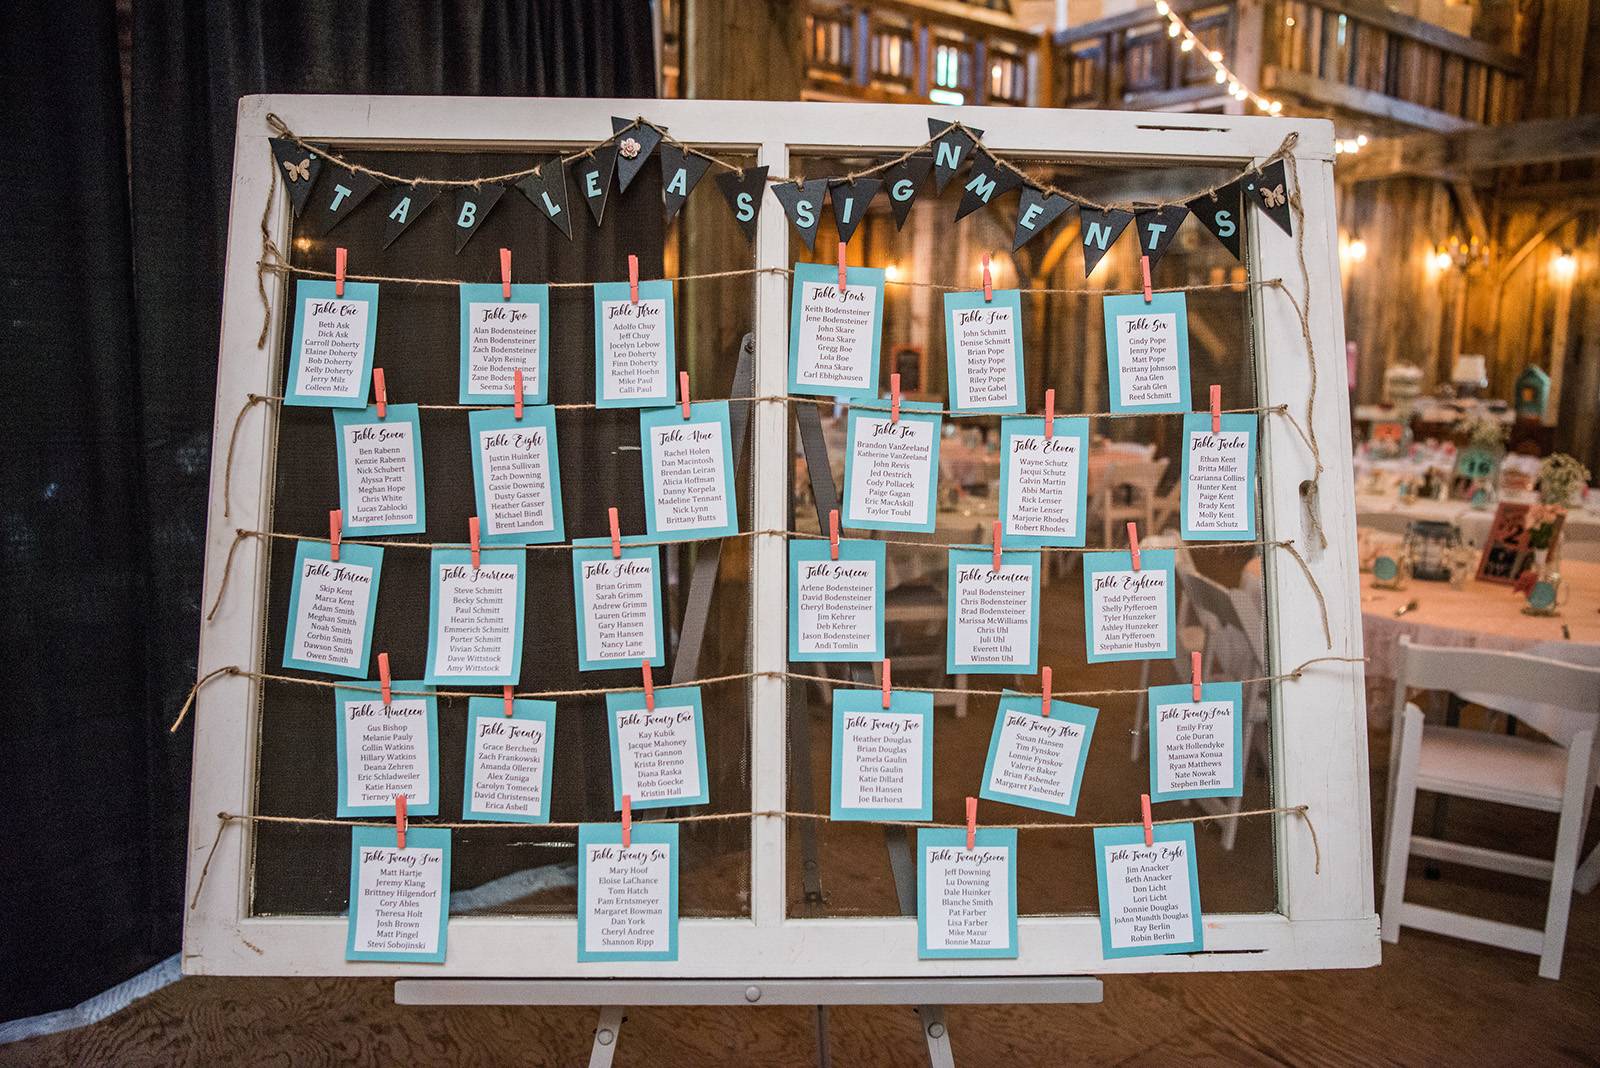 TABLE ASSIGNMENTS
Table One
Beth Ask
Dick Ask
Carroll Doherty
Elaine Doherty
Bob Doherty
Kelly Doherty
Jerry Milz
Colleen Milz
Table Two
Alan Bodensteiner
Ann Bodensteiner
Zach Bodensteiner
Valyn Reinig
Zoie Bodensteiner
Zane Bodensteiner
Seema
Table Three
Adolfo Chuy
Jeff Chuy
Jocelyn Lebow
Leo Doherty
Finn Doherty
Rachel Hoehn
Mike Paul
Calli Paul
Table Four
Keith Bodensteiner
Jene Bodensteiner
John Skare
Mona Skare
Gregg Boe
Lola Boe
Anna Skare
Carl Ebbighausen
Table Five
John Schmitt
Denise Schmitt
Brian Pope
Misty Pope
Brady Pope
Riley Pope
Dave Gabel
Ellen Gabel
Table Six
Cindy Pope
Jenny Pope
Matt Pope
Brittany Johnson
Ana Glen
Sarah Glen
Reed Schmitt
Table Seven
Ben Rabenn
Kenzie Rabenn
Nick Schubert
Alyssa Pratt
Meghan Hope
Chris White
Lucas Zablocki
Margaret Johnson
Table Eight
Justin Huinker
Jenna Sullivan
Zach Downing
Cassie Downing
Dusty Gasser
Heather Gasser
Michael Bindl
Brent Landon
Table Nine
Rachel Holen
Dan Macintosh
Brendan Leiran
Alicia Hoffman
Danny Korpela
Madeline Tennant
Nick Lynn
Brittany Butts
Table Ten
Brandon VanZeeland
Katherine VanZeeland
John Revis
Jed Oestrich
Cody Pollacek
Paige Gagan
Eric MacAskill
Taylor Toubl
Table Eleven
Wayne Schutz
Jacqui Schutz
Calvin Martin
Abbi Martin
Rick Lenser
Marie Lenser
Marjorie Rhodes
Robert Rhodes
Table Twelve
Ethan Kent
Britta Miller
Czarianna Collins
Hunter Kent
Paige Kent
Brady Kent
Molly Kent
Adam Schutz
Table Thirteen
Skip Kent
Marca Kent
Adam Smith
Meghan Smith
Noah Smith
Corbin Smith
Dawson Smith
Owen Smith
Table Fourteen
Steve Schmitt
Becky Schmitt
Paul Schmitt
Hearin Schmitt
Emmerich Schmitt
Porter Schmitt
Vivian Schmitt
Dave Wittstock
Amy Wittstock
Table Fifteen
Brian Grimm
Sarah Grimm
Andrew Grimm
Lauren Grimm
Gary Hansen
Pam Hansen
Nancy Lane
Connor Lane
Table Sixteen
Arlene Bodensteiner
David Bodensteiner
Cheryl Bodensteiner
Jim Kehrer
Deb Kehrer
Jason Bodensteiner
Andi Tomlin
Table Seventeen
Paul Bodensteiner
Chris Bodensteiner
Brad Bodensteiner
Marissa McWilliams
Chris Uhl
Juli Uhl
Everett Uhl
Winston Uhl
Table Eighteen
Todd Pyfferoen
Shelly Pyfferoen
Tyler Hunzeker
Ashley Hunzeker
Alan Pyfferoen
Stephanie Husbyn
Table Nineteen
Gus Bishop
Melanie Pauly
Collin Watkins
Hillary Watkins
Deana Zehren
Eric Schladweiler
Katie Hansen
Tierney Welter
Table Twenty
Grace Berchem
Zach Frankowski
Amanda Ollerer
Alex Zuniga
Carolyn Tomecek
David Christensen
Erica Asbell
Table Twenty One
Kay Kubik
Jacque Mahoney
Traci Gannon
Krista Brenno
Diana Raska
Robb Goecke
Kristin Hall
Table Twenty Two
Heather Douglas
Brian Douglas
Pamela Gaulin
Chris Gaulin
Katie Dillard
Ben Hansen
Joe Barhorst
Table Twenty Three
Susan Hansen
Tim Fynskov
Lonnie Fynskov
Valerie Baker
Brian Fasbender
Margaret Fasbender
Table Twenty Four
Emily Fray
Cole Duran
Mark Hollendyke
Mamawa Konua
Ryan Matthews
Nate Nowak
Stephen Berlin
Table Twenty Five
Matt Hartje
Jeremy Klang
Brittney Hilgendorf
Cory Ables
Theresa Holt
Josh Brown
Matt Pingel
Stevi Sobojinski
Table Twenty Six
Mary Hoof
Eloise LaChance
Tom Hatch
Pam Erntsmeyer
Margaret Bowman
Dan York
Cheryl Andree
Shannon Ripp
Table Twenty Seven
Jeff Downing
Lu Downing
Dale Huinker
Blanche Smith
Pat Farber
Lisa Farber
Mike Mazur
Bonnie Mazur
Table Twenty Eight
Jim Anacker
Beth Anacker
Don Licht
Lori Licht
Donnie Douglas
JoAnn Mundth Douglas
Ray Berlin
Robin Berlin
16
2